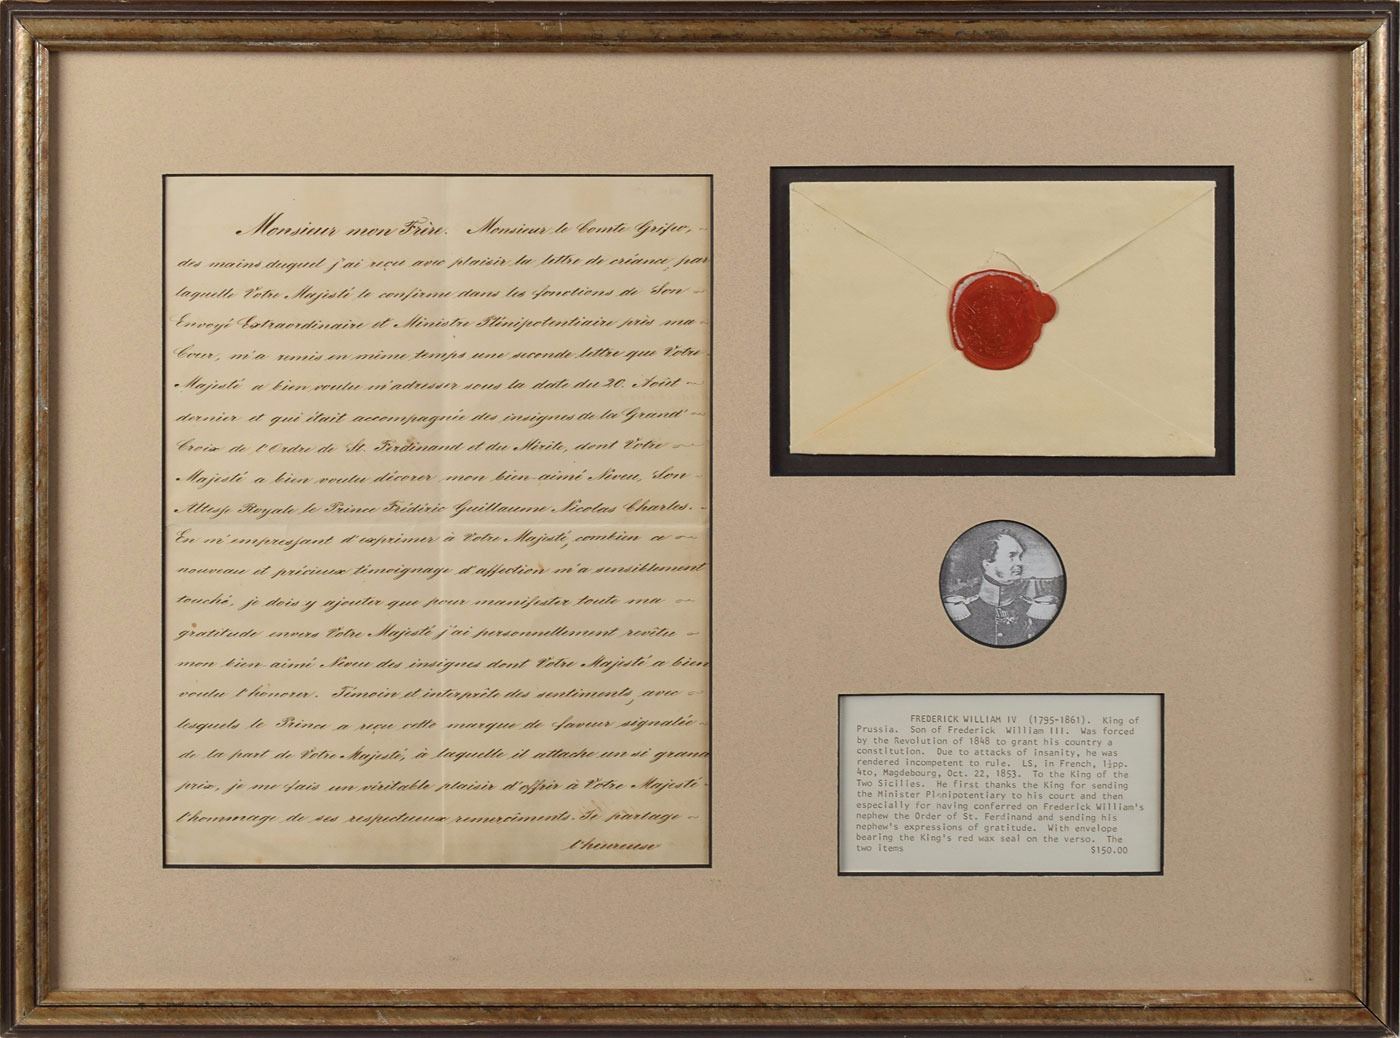 Monsieur mon Frère. Monsieur le Comte Grifeo,
des mains duquel j'ai reçu avec plaisir la lettre de créance, par
laquelle Votre Majesté le confirme dans les fonctions de Son
Envoyé Extraordinaire et Ministre Plénipotentiaire près ma
Cour, m'a remis en même temps une seconde lettre que Votre
Majesté a bien voulu m'adresser sous la date du 20. Août
dernier et qui était accompagnée des insignes de la Grand'
Croix de l'Ordre de St. Ferdinand et du Mérite, dont Votre
Majesté a bien voulu décorer mon bien-aimé Neveu, Son
Altesse Royale le Prince Frédéric Guillaume Nicolas Charles.
En m'empressant d'exprimer à Votre Majesté, combien ce
nouveau et précieux témoignage d'affection m'a sensiblement
touché, je dois y ajouter que pour manifester toute ma
gratitude envers Votre Majesté j'ai personnellement revêtu
mon bien aimé Neveu des insignes dont Votre Majesté a bien
voulu l'honorer. Témoin et interprète des sentiments, avec
lesquels le Prince a reçu cette marque de faveur signalée
de la part de Votre Majesté, à laquelle il attache un si grand
prix, je me fais un véritable plaisir d'offrir à Votre Majesté
l'hommage de ses respectueux remerciments. Je partage
l'heureuse
FREDERICK WILLIAM IV (1795-1861). King of
Prussia. Son of Frederick William III. Was forced
by the Revolution of 1848 to grant his country a
constitution. Due to attacks of insanity, he was
rendered incompetent to rule. LS, in French, 1½pp.
4to, Magdebourg, Oct. 22, 1853. To the King of the
Two Sicilies. He first thanks the King for sending
the Minister Plenipotentiary to his court and then
especially for having conferred on Frederick William's
nephew the Order of St. Ferdinand and sending his
nephew's expressions of gratitude. With envelope
bearing the King's red wax seal on the verso. The
two items $150.00